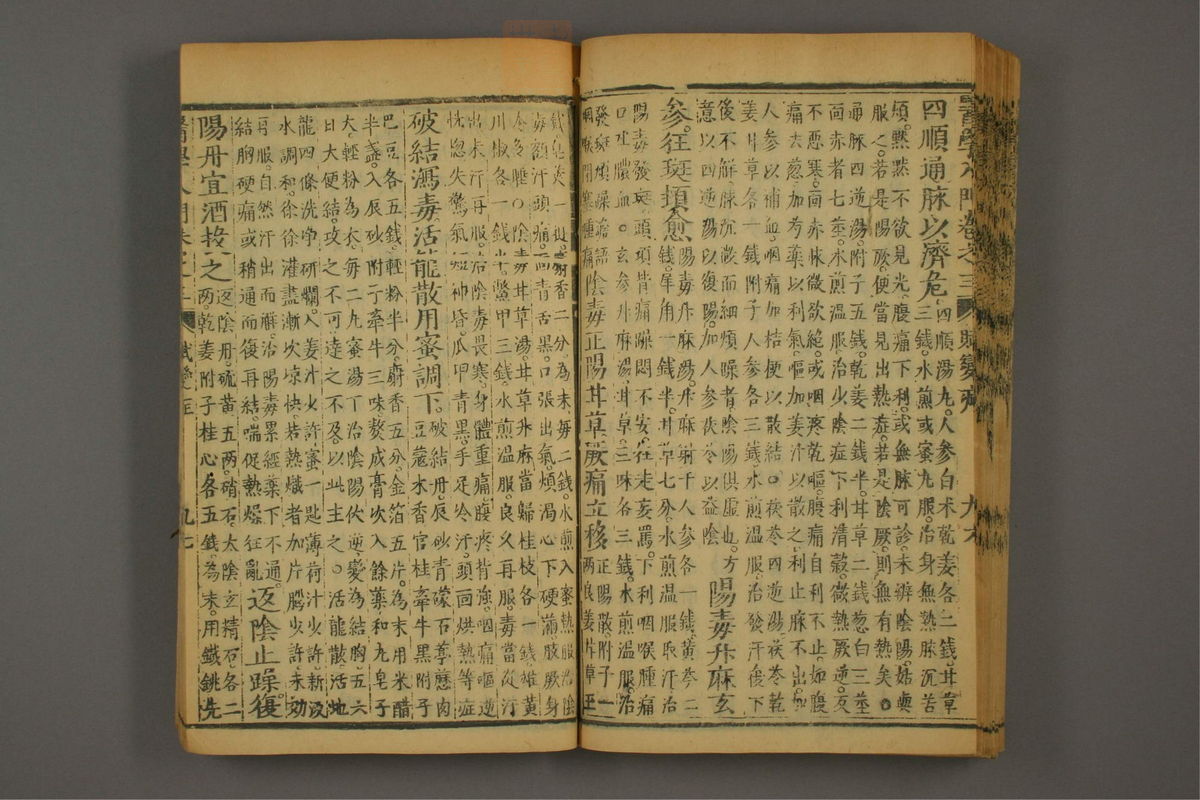 醫學入門卷之三 九六
四順通脉以濟危 四順湯丸。人參白术乾姜各二錢。甘草
三錢。水煎或蜜丸服。治身無熱脉沉苦
煩。默默不欲見光。腹痛下利。或無脉可診。未辨陰陽。姑與
服之。若是陽厥。便當見出熱症。若是陰厥。則無有熱矣。
通脉四逆湯。附子五錢。乾姜二錢半。甘草二錢。葱白三莖
面赤者七莖。水煎温服。治少陰症下利清穀。微熱厥逆。反
不惡寒。面赤脉微欲絶。或咽疼乾嘔。腹痛自利不止。如腹
痛去葱加芍藥以利氣。嘔加姜汁以散之。利止脉不出。加
人參以補血。咽痛加桔梗以散結。茯苓四逆湯。茯苓乾
姜甘草各一錢。附子人參各三錢。水煎温服。治發汗後。下
後不解。脉沉微而細煩躁者。陰陽俱虚也。方
意以四逆湯以復陽。加人參茯苓以益陰
陽毒升麻玄
參狂斑頓愈 陽毒升麻湯。升麻射干人參各一錢。黄芩二
錢。犀角一錢半。甘草七分。水煎温服取汗。治
陽毒發斑。頭項背痛。躁悶不安。狂走妄罵。下利咽喉腫痛
口吐膿血。玄參升麻湯。甘草三味各三錢。水煎温服。治
發斑煩躁譫語
咽喉閉塞腫痛
陰毒正陽甘草厥痛立移 正陽散。附子一
兩良姜甘草至
錢皂莢一挺。麝香二分。為末。每二錢水煎入蜜熱服。治陰
毒額汗頭痛。面青舌黑。口張出氣。煩渴心下硬滿。肢厥身
冷多睡。陰毒甘草湯。甘草升麻當歸桂枝各一錢。雄黄
川椒各一錢半。鱉甲三錢。水煎温服。良久再服。毒當從汗
出。未汗再服。治陰毒畏寒。身體重痛。腹疼背強。咽痛嘔逆
恍惚失驚。氣短神昏。瓜甲青黑。手足冷汗。頭面烘熱等症
破結瀉毒活龍散用蜜調下 破結丹。辰砂青礞石葶藶肉
豆蔻木香官桂牽牛黑附子
巴豆各五錢。輕粉半分。麝香五分。金箔五片。為末。用米醋
半盞。入辰砂附子牽牛三味。熬成膏。次入餘藥和丸皂子
大。輕粉為衣。每二丸蜜湯下。治陰陽伏逆。變為結胸。五六
日大便結。攻之不可。達之不及。以此主之。活龍散活地
龍四條洗净研爛。入姜汁少許。蜜一匙。薄荷汁少許。新汲
水調和。徐徐灌盡。漸次凉快。若熱熾者。加片腦少許。未効
再服。自然汗出而解。治陽毒累經藥下不通。
結胸硬痛。或稍通而復再結。喘促熱燥狂亂
返陰止躁復
陽丹宜酒投之 返陰丹。硫黄五兩。硝石太陰玄精石各二
兩。乾姜附子桂心各五錢。為末。用鐵銚先
九七